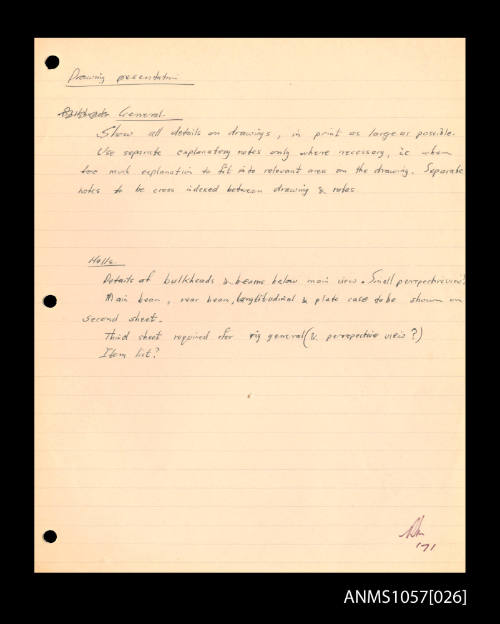 Drawing presentation
General.
Show all details on drawings, in print as large as possible.
Use separate explanatory notes only where necessary, ie when
too much explanation to fit into relevant area on the drawing. Separate
notes to be cross indexed between drawing & notes
Hulls.
Details of bulkheads & beams below main view. Small perspective view?
Main beam, rear beam, longtitudinal & plate case to be shown on
second sheet.
Third sheet required for rig general (& perspective view?)
Item list?
'71
ANMS1057[026]